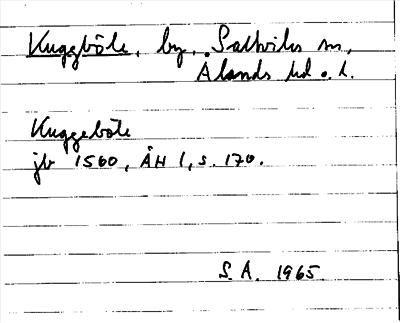 Kuggböle, by, Saltviks sn,
Ålands hd o. l.
Kuggeböle
jb 1560, ÅH 1, s. 170.
S.A. 1965.